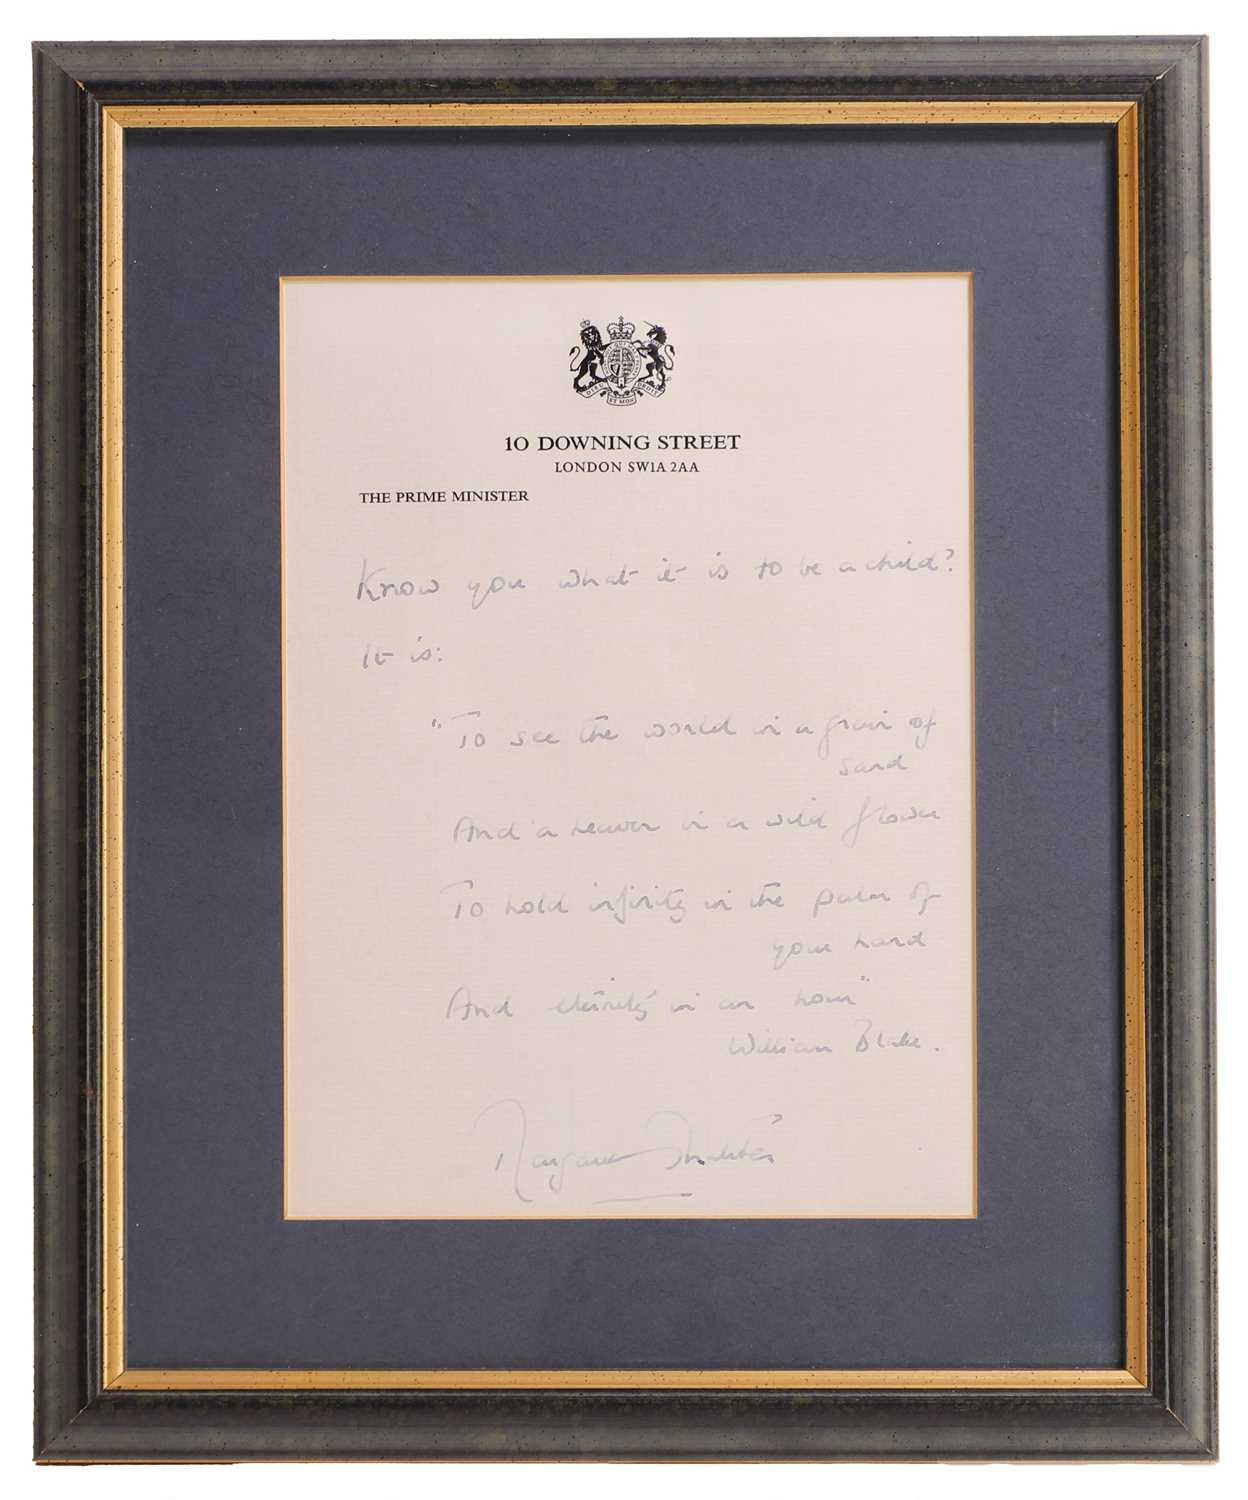 DIEU ET MON DROIT
10 DOWNING STREET
LONDON SW1A 2AA
THE PRIME MINISTER
Know you what it is to be a child?
It is:
"To see the world in a grain of
sand
And a heaven in a wild flower
To hold infinity in the palm of
your hand
And eternity in an hour"
William Blake.
Margaret Thatcher